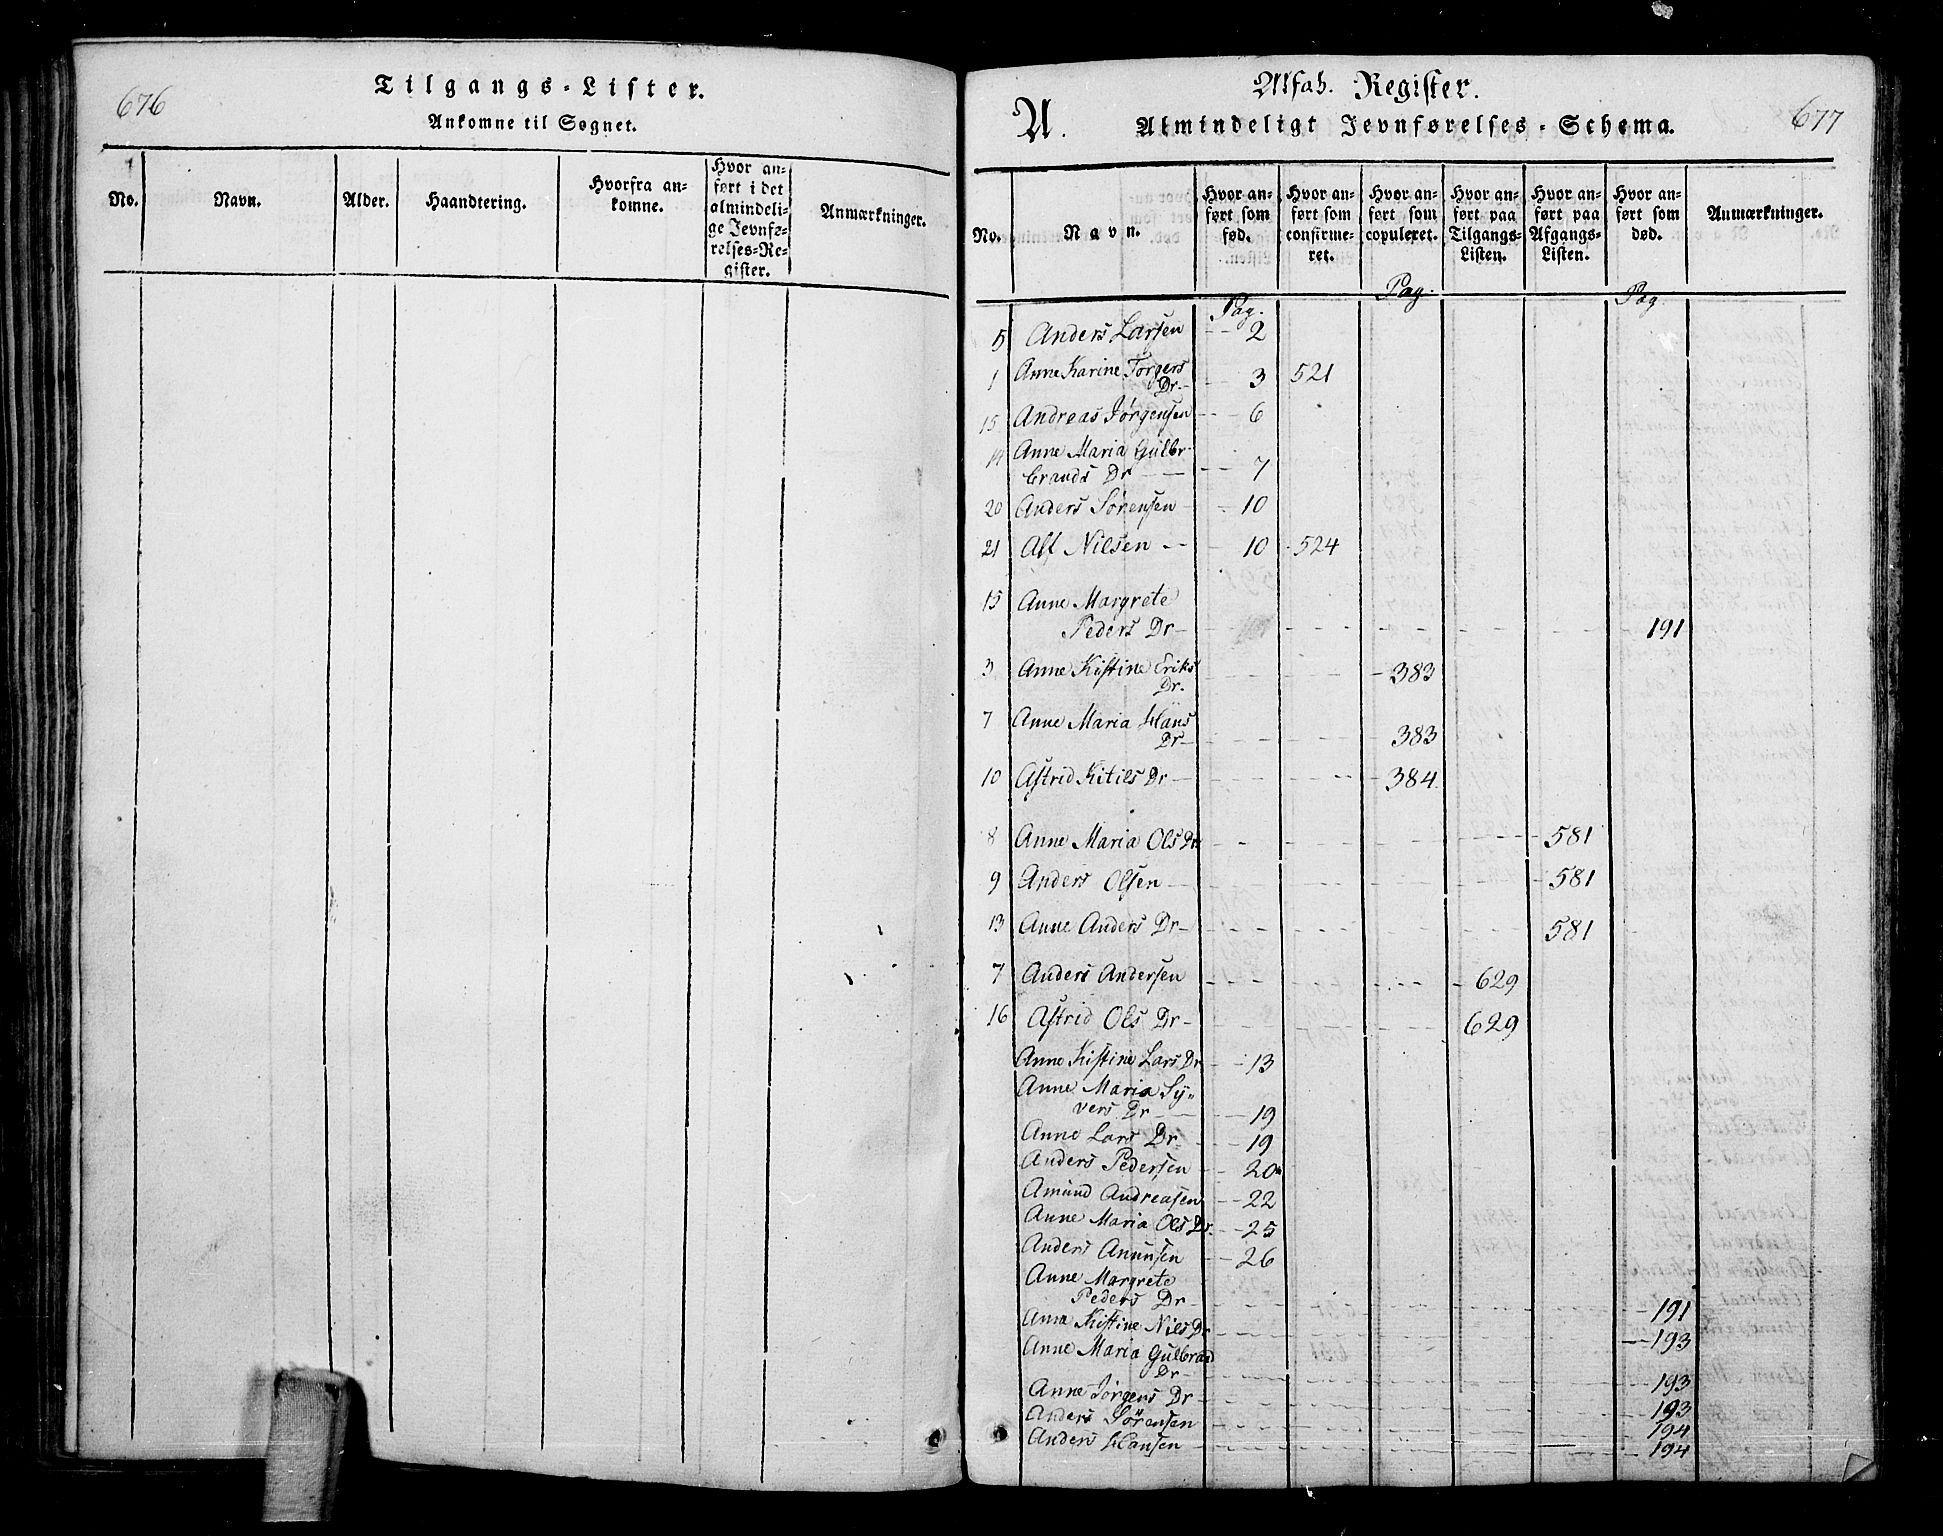 676
Tilgangs-Lister.
Ankomne til Sognet.
No.
Navn.
Alder.
Haandtering.
Hvorfra an-
komne.
Hvor an-
ført i det
almindeli-
ge Jevnfø-
relses-Re-
gister.
Anmærkninger.
Alfab. Register.
677
A.
Almindeligt Jevnførelses-Schema.
No.
Navn.
Hvor an-
ført som
fød.
Hvor an-
ført som
confirme-
ret.
Hvor an-
ført som
copuleret.
Hvor an-
ført paa
Tilgangs-
Listen.
Hvor an-
ført paa
Afgangs-
Listen.
Hvor an-
ført som
død.
Anmærkninger.
Pag. Pag. Pag
5 Anders Larsen -- 2
1 Anne Karine Torgers
Dr. - 3 521
15 Andreas Jørgensen -- 6
14 Anne Maria Gulbr
brands Dr -- 7
20 Anders Sørensen - 10
21 Alf Nilsen -- 10 524
15 Anne Margrete
Peders Dr - 191
3 Anne Kistine Eriks
Dr. - 383
7 Anne Maria Hans
Dr - 383
10 Astrid Kitils Dr - 384
8 Anne Maria Ols Dr - 581
9 Anders Olsen - 581
13 Anne Anders Dr - 581
7 Anders Andersen - 629
16 Astrid Ols Dr - 629
Anne Kistine Lars Dr - 13
Anne Maria Sy-
vers Dr - 19
Anne Lars Dr - 19
Anders Pedersen - 20
Amund Andreasen - 22
Anne Maria Ols Dr. - 25
Anders Anunsen - 26
Anne Margrete
Peders Dr - 191
Anna Kistine Nils Dr - 193
Anne Maria Gulbrand
Dr - 193
Anne Jørgens Dr - 193
Anders Sørensen - 194
Anders Hansen - 194